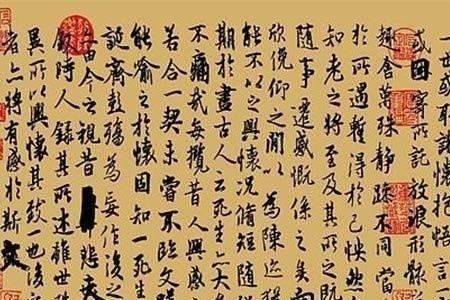 一世或取諸懷抱悟言一
或因寄所託放浪形骸
趣舍萬殊靜躁不同當
於所遇暫得於己怏然
知老之將至及其所之既
隨事遷感慨係之矣向
欣俛仰之閒以為陳迹
能不以之興懷況脩短隨
期於盡古人云死生亦大
不痛哉每攬昔人興感
若合一契未嘗不臨文
能喻之於懷固知一死生
誕齊彭殤為妄作後之
亦由今之視昔悲夫
敘時人錄其所述雖世
異所以興懷其致一也後
者亦將有感於斯文